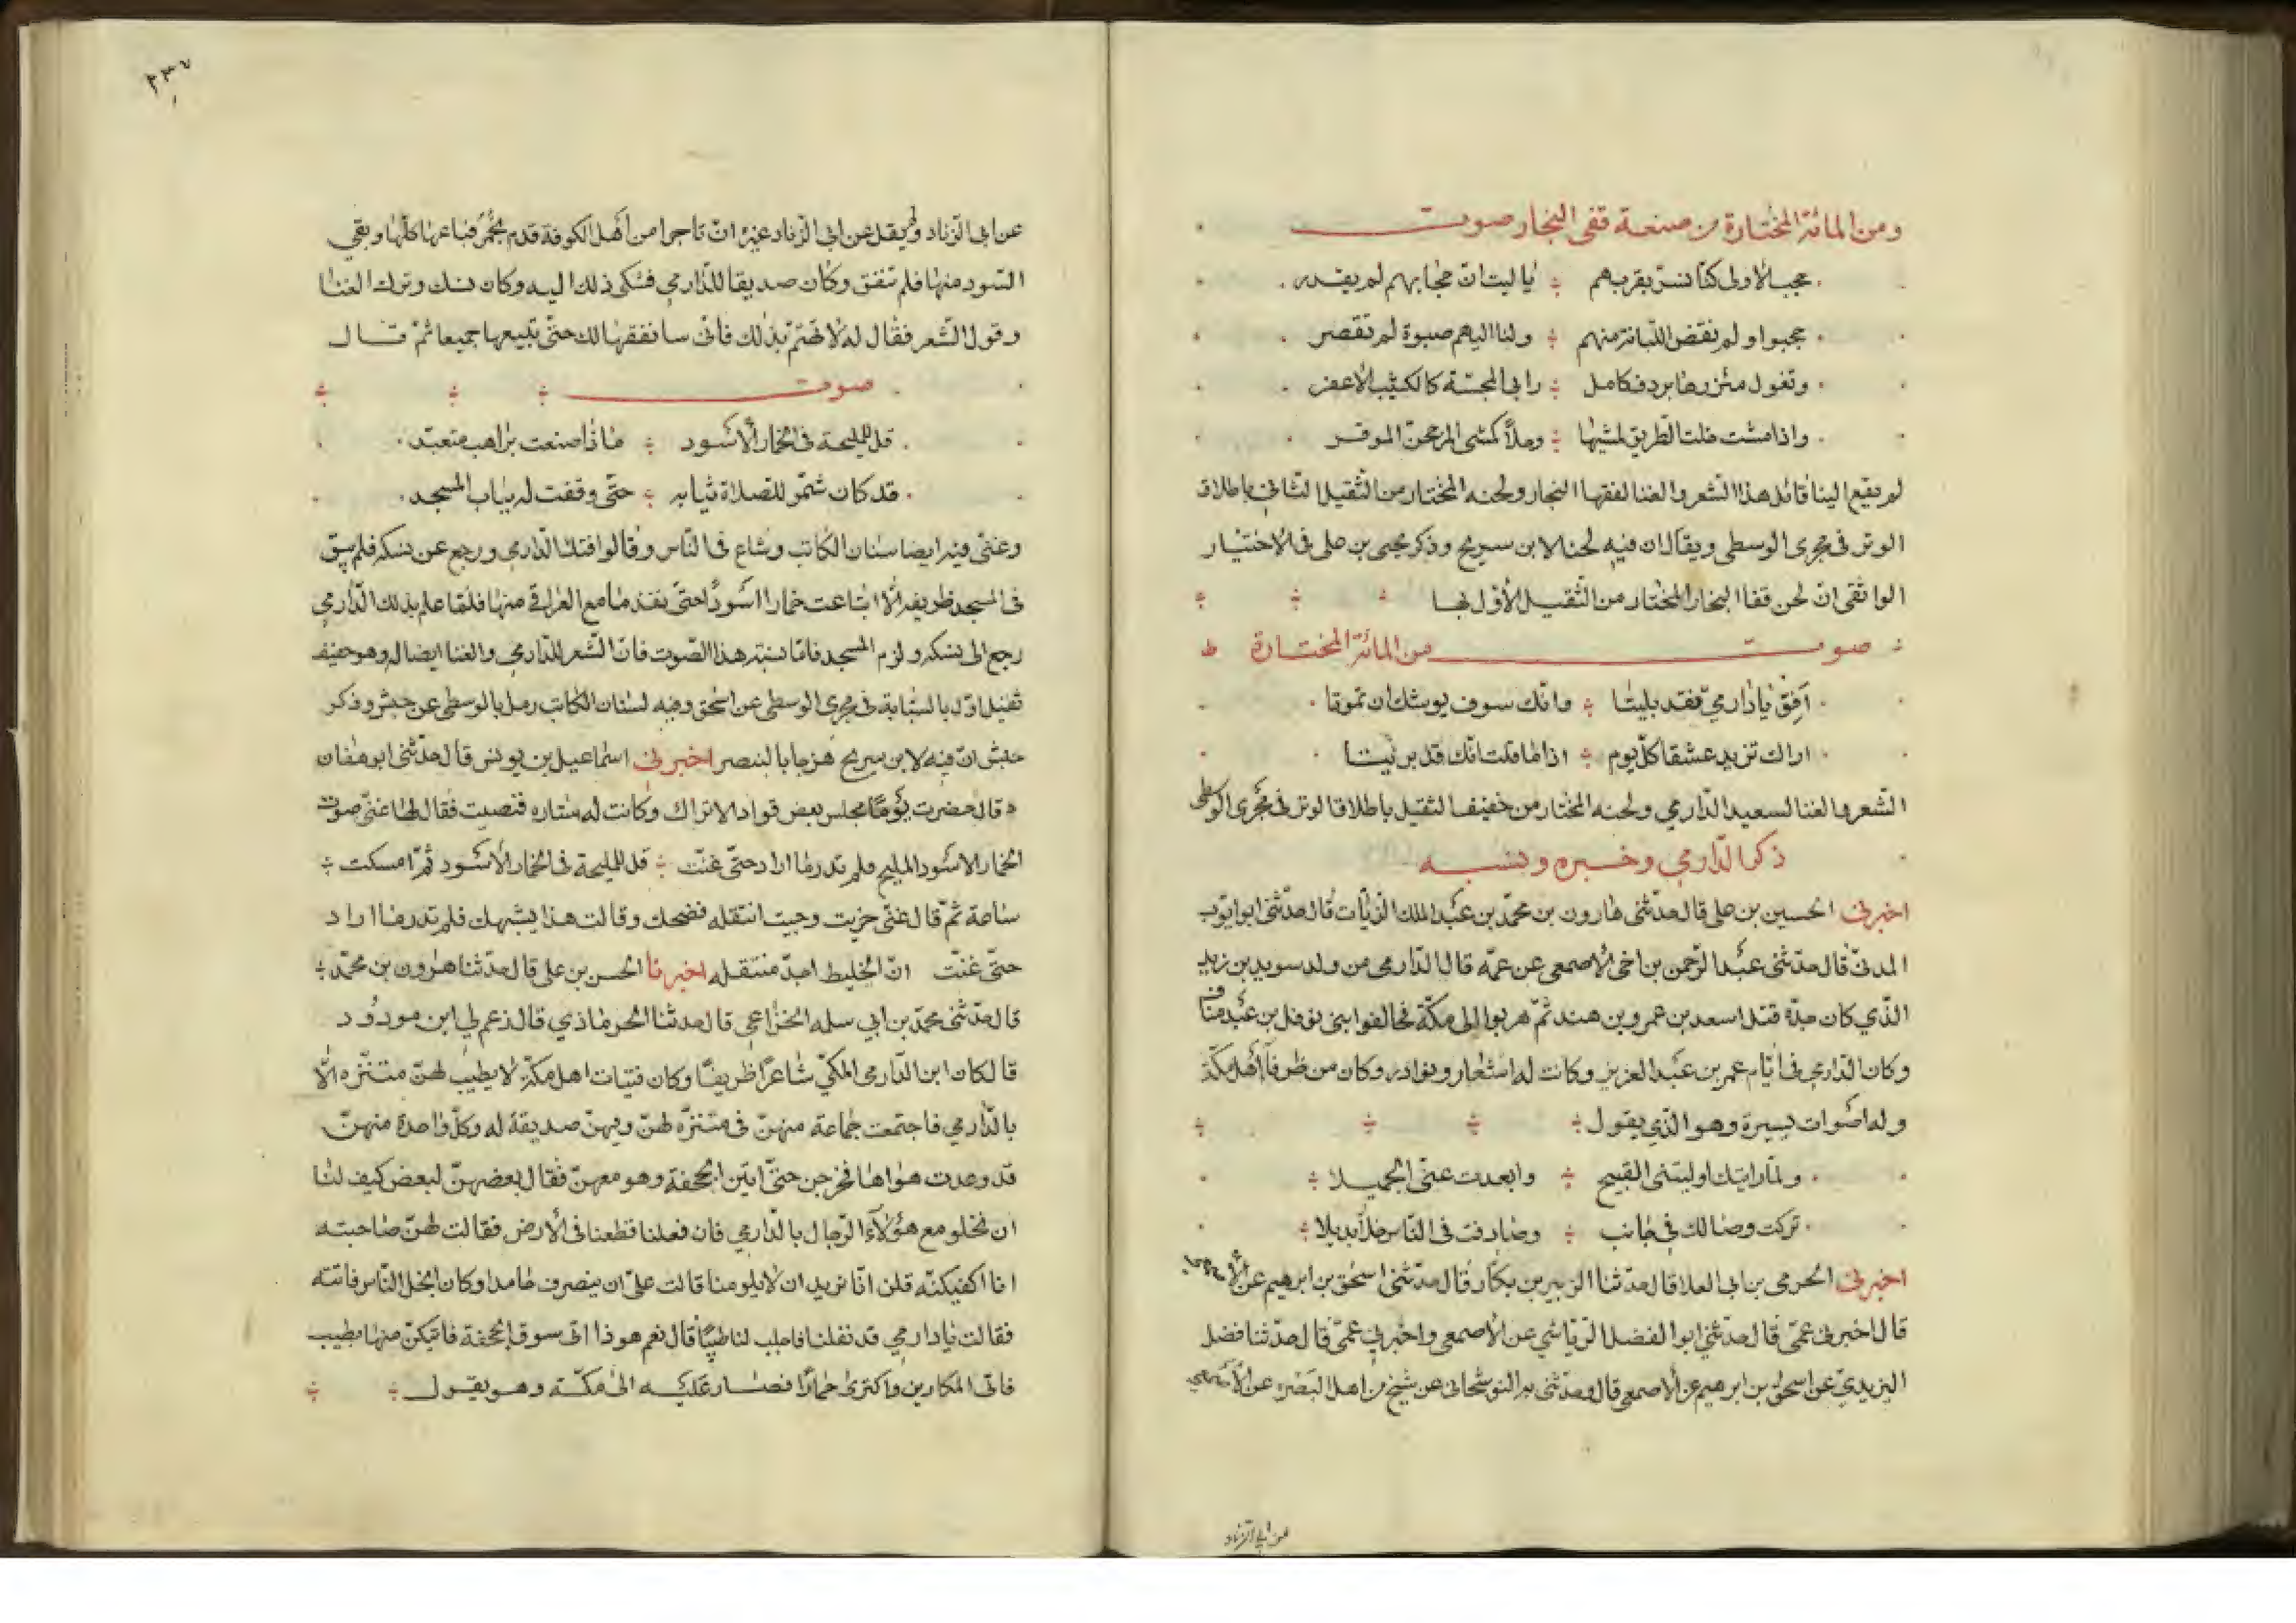 ومن المائة المختارة من صنعة قفى النجار صوت
عجب الاولى كنا نسر بقربهم ؞ يا ليت ان حجابهم لم يقدر
عجبوا ولم نقض اللبانة منهم ؞ ولنا اليهم صبوة لم تقصر
وتغول مئزرها بردف كامل ؞ رابى المجسّة كالكثيب الاعفر
واذا مشت خلت الطريق لمشيها ؞ وحلاً كمشى المرجحن الموقر
لم يقع الينا قائل هذا الشعر والغنا لفقها النجار ولحنه المختار من الثقيل الثاني باطلاق
الوتر في مجرى الوسطى ويقال ان فيه لحنا لابن سريج وذكر يحيى بن على في الاختيار
الواثقى ان لحن قفا النجار المختار من الثقيل الاول لها
صوت من المائة المختارة
اَفِق يا دارمىّ فقد بليتا ؞ وانك سوف يوشك ان تموتا
اراك تزيد عشقا كل يوم ؞ اذا ما قلت انك قد بريتا
الشعر والغنا لسعيد الدارمي ولحنه المختار من خفيف الثقيل باطلاق الوتر في مجرى الوسطى
ذكر الدارمي وخبره ونسبه
اخبرني الحسين بن على قال حدثنى هارون بن محمد بن عبد الملك الزيات قال حدثنى ابو ايوب
المدنى قال حدثنى عبد الرحمن بن اخى الاصمعى عن عمه قال الدارمى من ولد سويد بن زيد
الذي كان جدّه قتل اسعد بن عمرو بن هند ثم هربوا الى مكة فحالفوا بنى نوفل بن عبد مناف
وكان الدارمى في ايام عمر بن عبد العزيز وكانت له اشعار ونوادر وكان من ظرفآ اهل مكة
وله اصوات يسيرة وهو الذي يقول ؞
ولما رايتك اوليتنى القبيح ؞ وابعدت عنى الجميلا
تركت وصالك في جانب ؞ وصادفت في الناس خلا بديلا
اخبرني الحرمى بن ابى العلا قال حدثنا الزبير بن بكار قال حدثنى اسحق بن ابرهيم عن الاصمعى
قال اخبرنى عمى قال حدثني ابو الفضل الرياشي عن الاصمعى واخبرني عمى قال حدثنا فضل
اليزيدى عن اسحق بن ابرهيم عن الاصمعى قال وحدثنى به النوشجانى عن شيخ من اهل البصرة عن الاصمعى
عن ابي الزناد
٢٣٧
عن ابى الزناد ولم يقل عن ابى الزناد غيره ان تاجرا من اهل الكوفة قدم بخمر فباعها كلها وبقي
السود منها فلم تنفق وكان صديقا للدارمي فشكى ذلك اليه وكان نسك وترك الغنا
وقول الشعر فقال له لا تهتم بذلك فانى سانفقها لك حتى تبيعها جميعا ثم قال
صوت
قل للمليحة في الخمار الاسود ؞ ماذا صنعت براهب متعبد
قد كان شمّر للصلاة ثيابه ؞ حتى وقفت له بباب المسجد
وغنى فيه ايضا سنان الكاتب وشاع في الناس وقالوا فتك الدارمي ورجع عن نسكه فلم يبق
في المسجد ظريفه الا ابتاعت خمارا اسود حتى نفذ ما مع العراقي منها فلما علم بذلك الدارمي
رجع الى نسكه ولزم المسجد فاما نسبة هذا الصوت فان الشعر للدارمي والغنا ايضا له وهو خفيف
ثقيل اول بالسبابة في مجرى الوسطى عن اسحق وفيه لسنان الكاتب رمل بالوسطى عن حبش وذكر
حبش ان فيه لابن سريج هزجا بالبنصر اخبرنى اسماعيل بن يونس قال حدثنى ابو هفان
قال حضرت يوما مجلس بعض قواد الاتراك وكانت له ستاره فنصبت فقال لها غنى صوت
الخمار الاسود المليح فلم ندر ما اراد حتى غنت ؞ قل للمليحة في الخمار الاسود ثم امسكت ؞
ساعة ثم قال غنى خريت وجيت انتقله فضحك وقالت هذا يشبهك فلم ندر ما اراد
حتى غنت ان الخليط اجدّ منتقله اخبرنا الحسن بن على قال حدثنا هرون بن محمد ؞
قال حدثنى محمد بن ابي سله الخزاعي قال حدثنا الحرماذي قال زعم لي ابن مودود
قال كان ابن الدارمى المكي شاعرا ظريفا وكان فتيات اهل مكة لا يطيب لهن متنزه الا
بالدارمي فاجتمعت جماعة منهن في متنزه لهن وفيهن صديقة له وكل واحدة منهن
قد وعدت هواها فخرجن حتى اتين الجحفة وهو معهن فقال بعضهن لبعض كيف لنا
ان نخلو مع هؤلآء الرجال بالدارمي فان فعلنا قطعنا في الارض فقالت لهن صاحبته
انا اكفيكنه قلن انا نريد ان لا يلومنا قالت على ان ينصرف حامدا وكان ابخل الناس فاتته
فقالت يا دارمي قد تفلنا فاجلب لنا طيبا قال نعم هو ذا اتى سوق الجحفة فاتيكن منها بطيب
فاتى المكارين واكترى حمارا فصار عليه الى مكة وهو يقول ؞